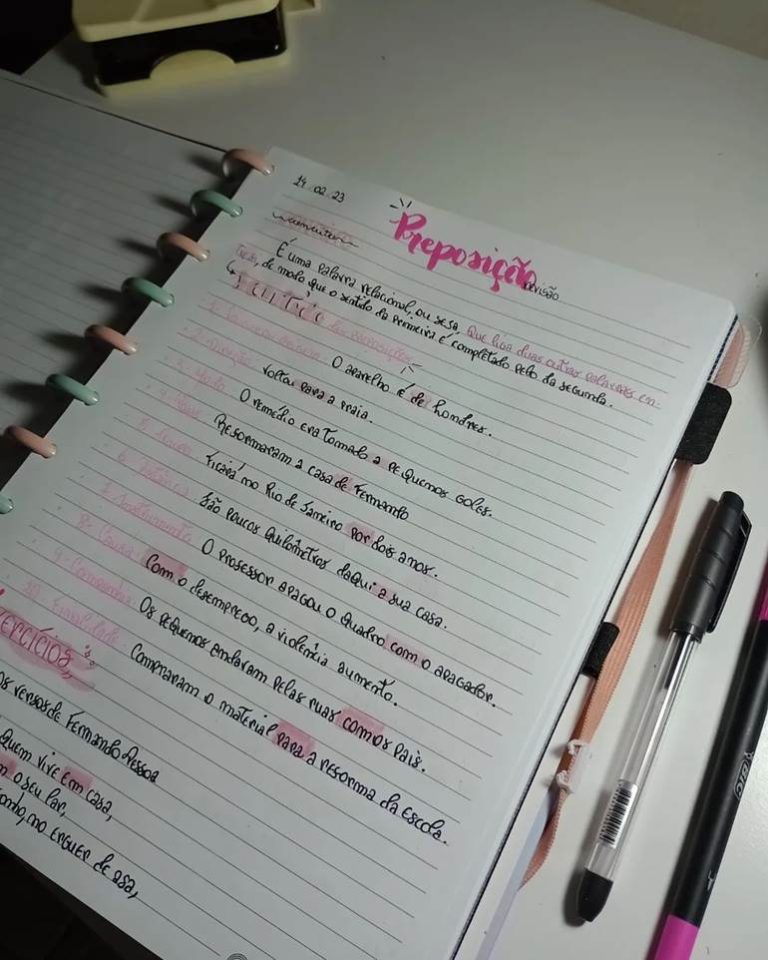 14.02.23
Preposição
revisão
É uma palavra relacional, ou seja, que liga duas outras palavras en-
tre si, de modo que o sentido da primeira é completado pelo da segunda.
das preposições
O aparelho é de Londres.
2- Direção Voltou para a praia.
3- Modo O remédio era tomado a pequenos goles.
4- Posse Reformaram a casa de Fernando
5- Tempo Ficará no Rio de Janeiro por dois anos.
6- Distância São poucos quilômetros daqui a sua casa.
7- Instrumento O professor apagou o quadro com o apagador.
8- Causa Com o desemprego, a violência aumento.
9- Companhia Os pequenos andaram pelas ruas com os pais.
10- Finalidade Compraram o material para a reforma da escola.
ercícios
os versos de Fernando Pessoa
Quem vive em casa,
o seu lar,
no erguer de asa,
BIC